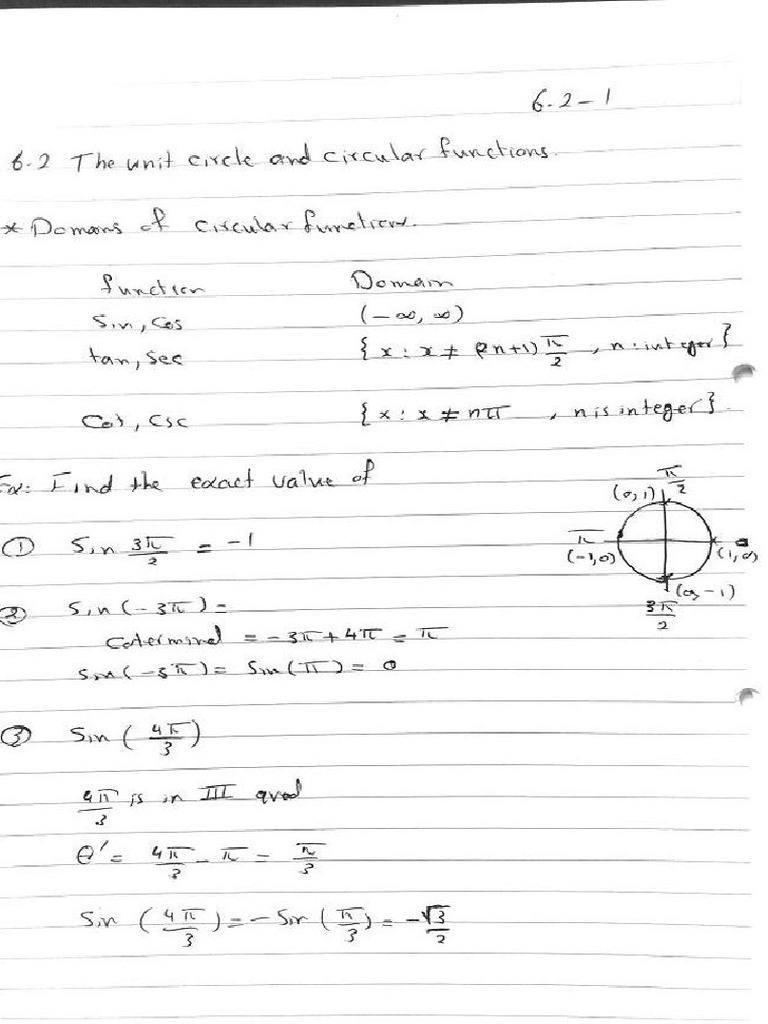 6.2-1
6.2 The unit circle and circular functions.
* Domans of circular function.
function Domain
Sin, Cos (-∞, ∞)
tan, Sec {x : x ≠ (2n+1) π/2 , n : integer}
Cot, CSC {x : x ≠ nπ , n is integer}.
Ex: Find the exact value of
π/2
(0,1)
① Sin 3π/2 = -1
π
(-1,0)
(1,0)
(0,-1)
3π/2
② Sin(-3π) =
Coterminal = -3π + 4π = π
Sin(-3π) = Sin(π) = 0
③ Sin(4π/3)
4π/3 is in III quad
θ' = 4π/3 - π = π/3
Sin(4π/3) = -Sin(π/3) = -√3/2